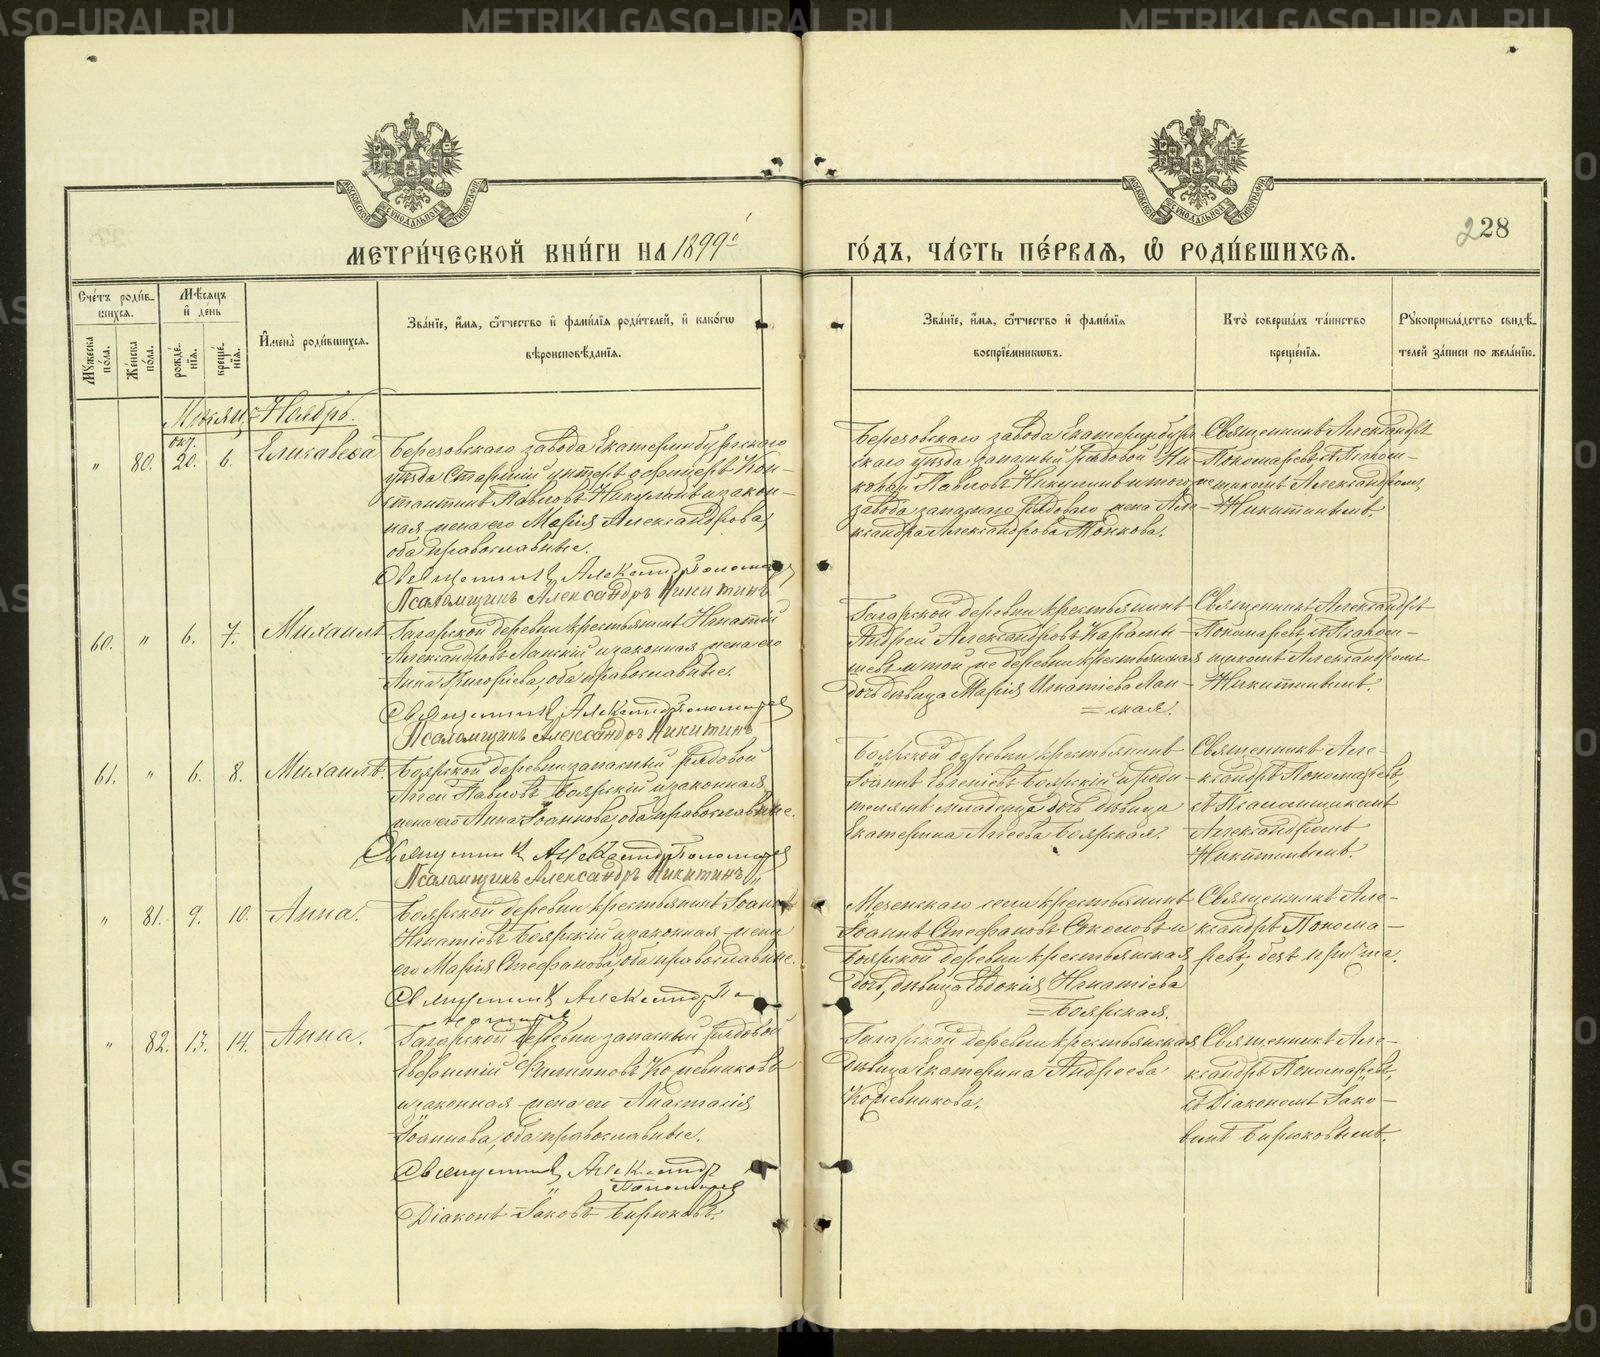 МЕТРИ́ЧЕСКОЙ КНИ́ГИ НА 1899й
ГО́ДЪ, ЧА́СТЬ ПЕ́РВАѦ, Ѽ РОДИ́ВШИХСѦ.
228
Сче́тъ роди́в-
шихсѧ.
Мѣ́сѧцъ
и҆ де́нь
Мꙋ́жеска
по́ла.
Же́нска
по́ла.
рожде́-
нїѧ.
креще́-
нїѧ.
И҆мена̀ роди́вшихсѧ.
Зва́нїе, и҆́мѧ, ѻ҆́тчество и҆ фами́лїѧ роди́телей, и҆ како́гѡ
вѣроисповѣ́данїѧ.
Зва́нїе, и҆́мѧ, ѻ҆́тчество и҆ фами́лїѧ
воспрїе́мникѡвъ.
Кто̀ соверша́лъ та́инство
креще́нїѧ.
Рꙋкоприкла́дство свидѣ́-
телей за́писи по жела́нїю.
Мѣсяцъ Ноябрь.
"
80.
окт.
20.
6.
Елисавета
Березовскаго завода Екатеринбургскаго
уѣзда Старшій унтеръ офицеръ Кон-
стантинъ Павловъ Никулинъ и закон-
ная жена его Марія Александрова,
оба православные.
Священникъ Александръ Пономаревъ
Псаломщикъ Александръ Никитинъ
Березовскаго завода Екатеринбург-
скаго уѣзда запасный рядовой Ни-
колай Павловъ Никулинъ и того же
завода запаснаго рядоваго жена Але-
ксандра Александрова Попкова.
Священникъ Александръ
Пономаревъ, съ Псалом-
щикомъ Александромъ
Никитинымъ.
60.
"
6.
7.
Михаилъ
Гагарской деревни крестьянинъ Игнатій
Александровъ Ланскій и законная жена его
Анна Григорьева, оба православные.
Священникъ Александръ Пономаревъ
Псаломщикъ Александръ Никитинъ
Гагарской деревни крестьянинъ
Андрей Александровъ
и той же деревни крестьянская
дочь дѣвица Марія Игнатіева Лан-
=ская.
Священникъ Александръ
Пономаревъ, съ Псалом-
щикомъ Александромъ
Никитинымъ.
61.
"
6.
8.
Михаилъ.
Боярской деревни запасный рядовой
Аггей Павловъ Боярскій и законная
жена его Анна Іоаннова, оба православные.
Священникъ Александръ Пономаревъ
Псаломщикъ Александръ Никитинъ
Боярской деревни крестьянинъ
Іоаннъ Евгеніевъ Боярскій и роди-
телямъ младенца дочь дѣвица
Екатерина Аггеева Боярская.
Священникъ Але-
ксандръ Пономаревъ,
съ Псаломщикомъ
Александромъ
Никитинымъ.
"
81.
9.
10.
Анна.
Боярской деревни крестьянинъ Іоаннъ
Игнатіевъ Боярскій и законная жена
его Марія Стефанова, оба православные.
Священникъ Александръ По-
номаревъ
Мезенскаго села крестьянинъ
Іоаннъ Стефановъ Соколовъ и
Боярской деревни крестьянская
дочь, дѣвица Евдокія Игнатіева
=Боярская.
Священникъ Але-
ксандръ Понома-
ревъ, безъ причта.
"
82.
13.
14.
Анна.
Гагарской деревни запасный рядовой
Евфимій Филипповъ Кожевниковъ
и законная жена его Анастасія
Іоаннова, оба православные.
Священникъ Александръ
Пономаревъ
Діаконъ Іаковъ Бирюковъ.
Гагарской деревни крестьянская
дѣвица Екатерина Андреева
Кожевникова.
Священникъ Але-
ксандръ Пономаревъ,
съ Діакономъ Іако-
вомъ Бирюковымъ
METRIKI.GASO-URAL.RU